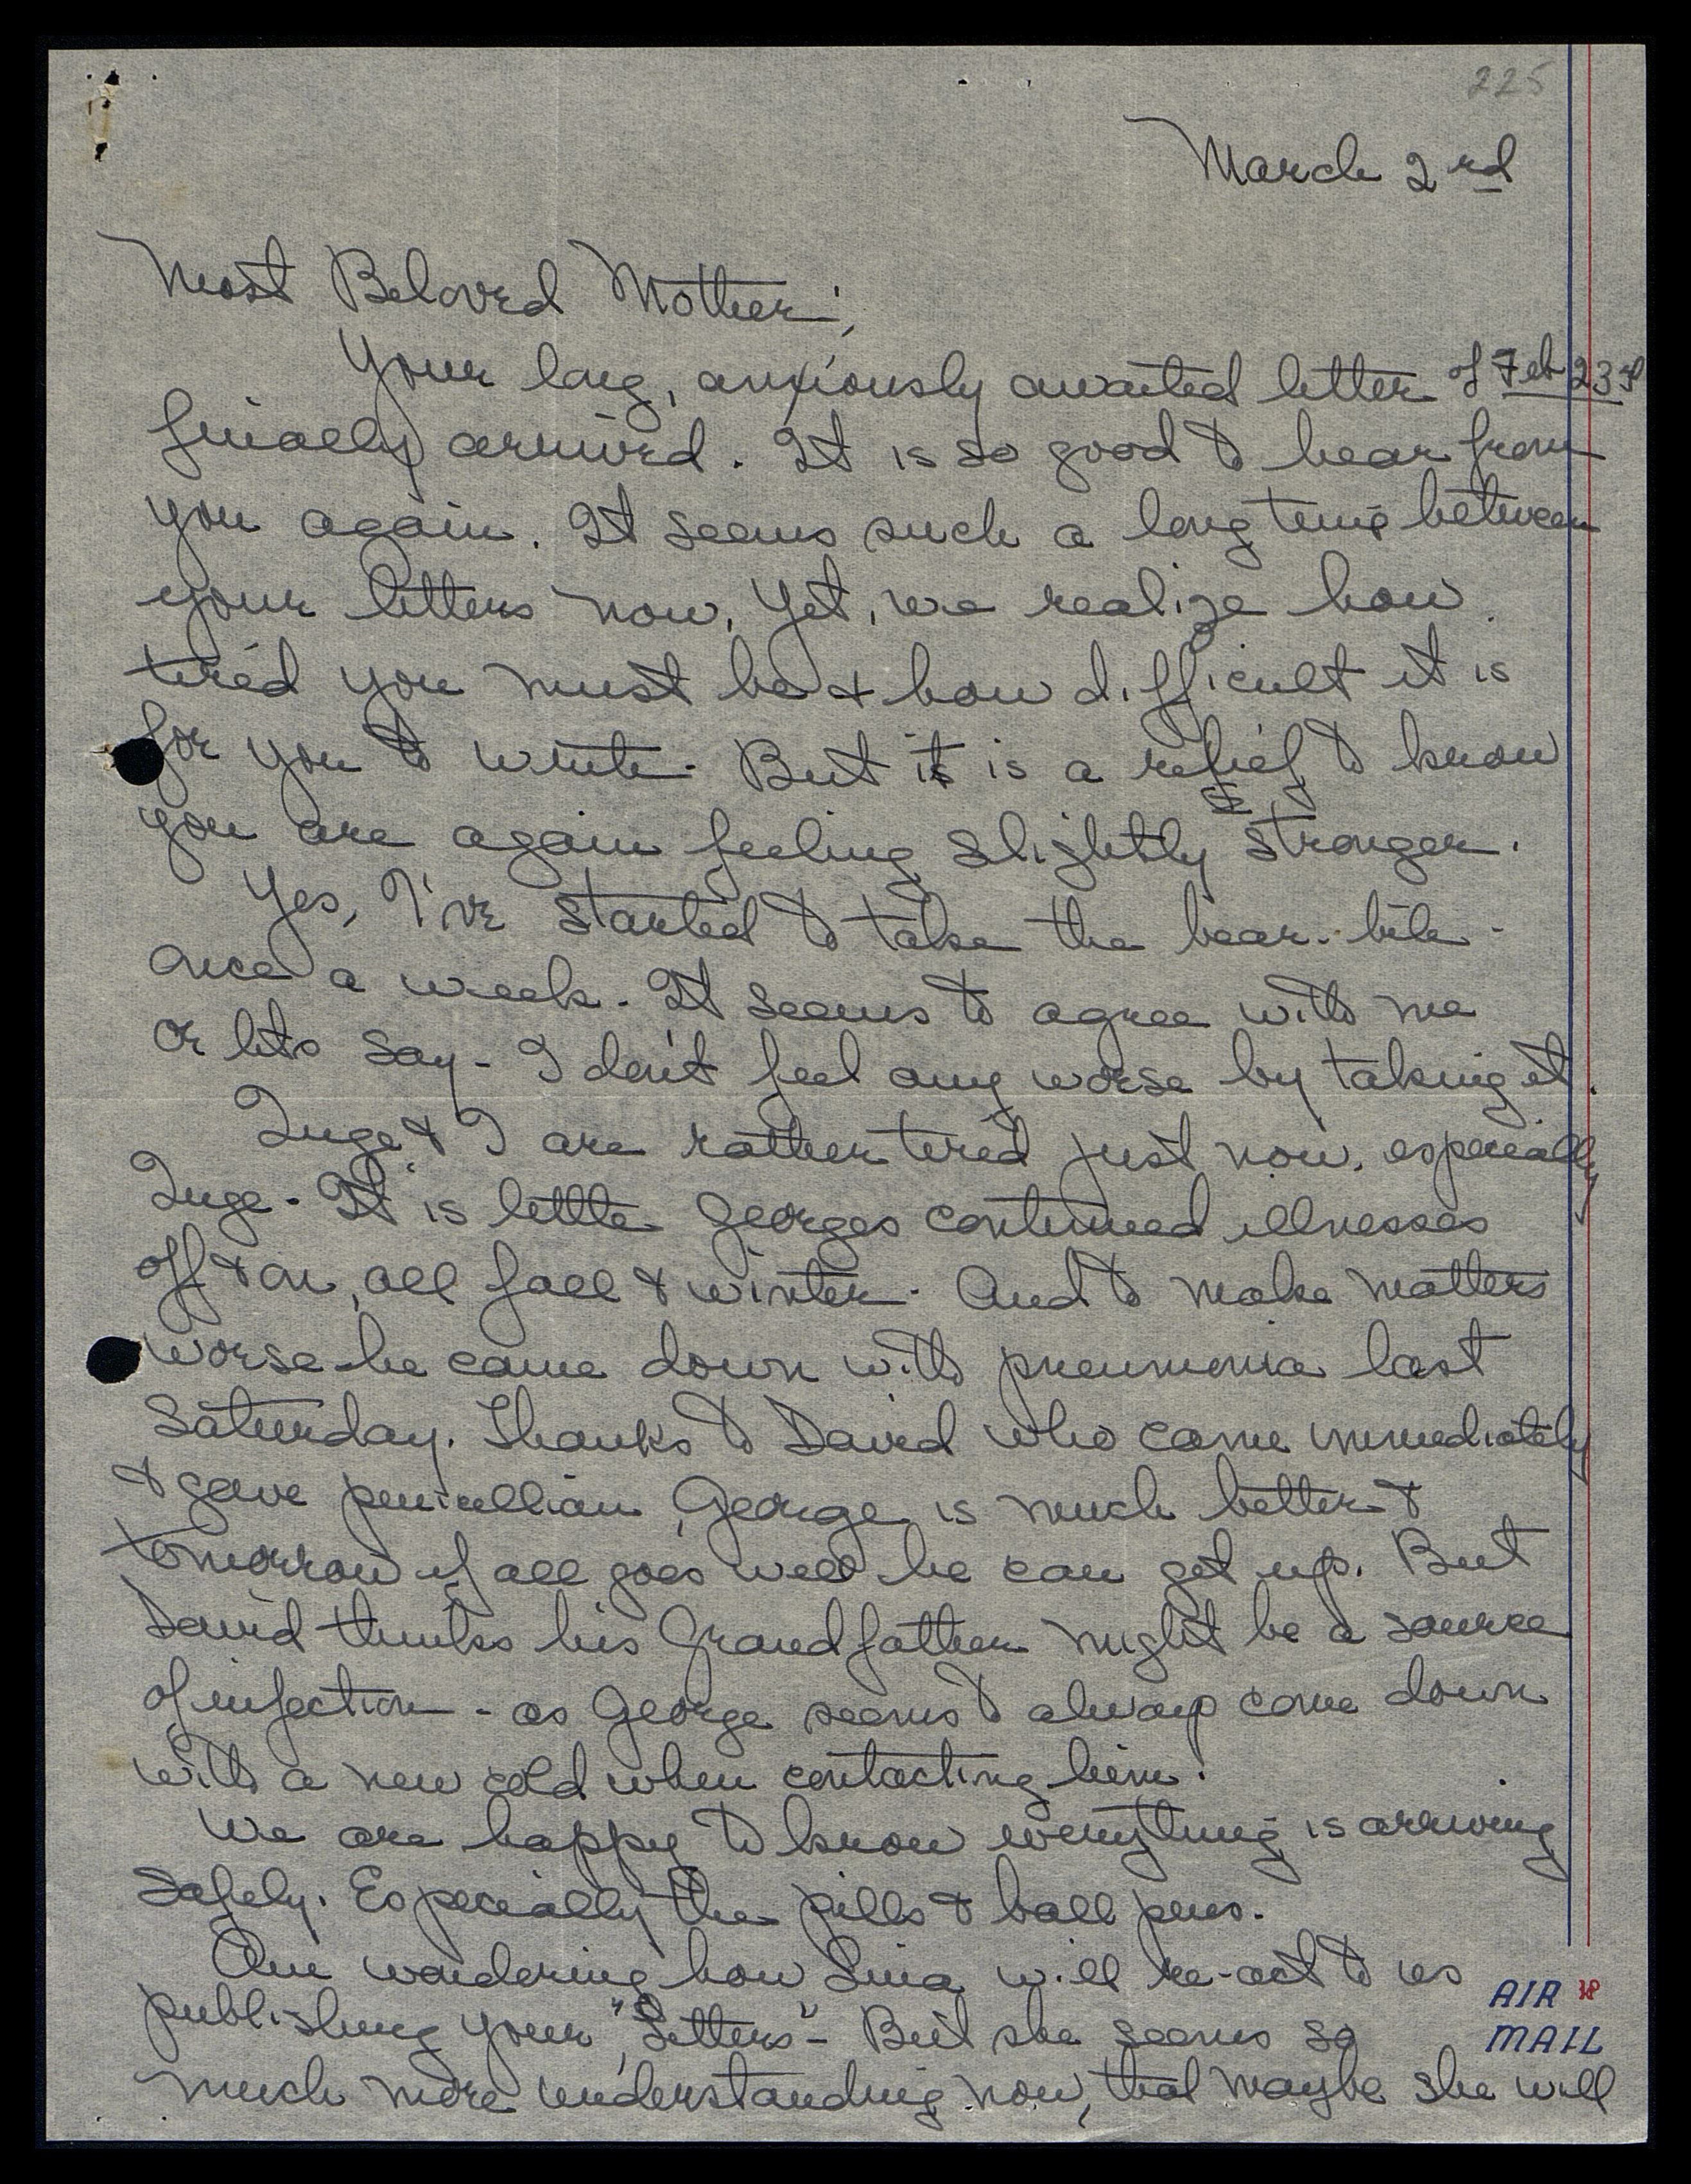 225
March 2nd
Most Beloved Mother;
Your long, anxiously awaited letter of Feb 23rd
finally arrived. It is so good to hear from
you again. It seems such a long time between
your letters now. Yet, we realize how
tired you must be & how difficult it is
for you to write. But it is a relief to know
you are again feeling slightly stronger.
Yes, I've started to take the bear-bile -
once a week. It seems to agree with me
or lets say - I don't feel any worse by taking it.
Inge & I are rather tired just now, especially
Inge. It is little Georges continued illnesses
off & on, all fall & winter. And to make matters
worse he came down with pneumonia last
Saturday. Thanks to David who came immediately
& gave penicillian, George is much better &
tomorrow if all goes well he can get up. But
David thinks his Grandfather might be a source
of infection - as George seems to always come down
with a new cold when contacting him.
We are happy to know everything is arriving
safely. Especially the pills & ball pens.
Am wondering how Lina will re-act to us
publishing your "Letters" - But she seems so
much more understanding now, that maybe she will
AIR
MAIL